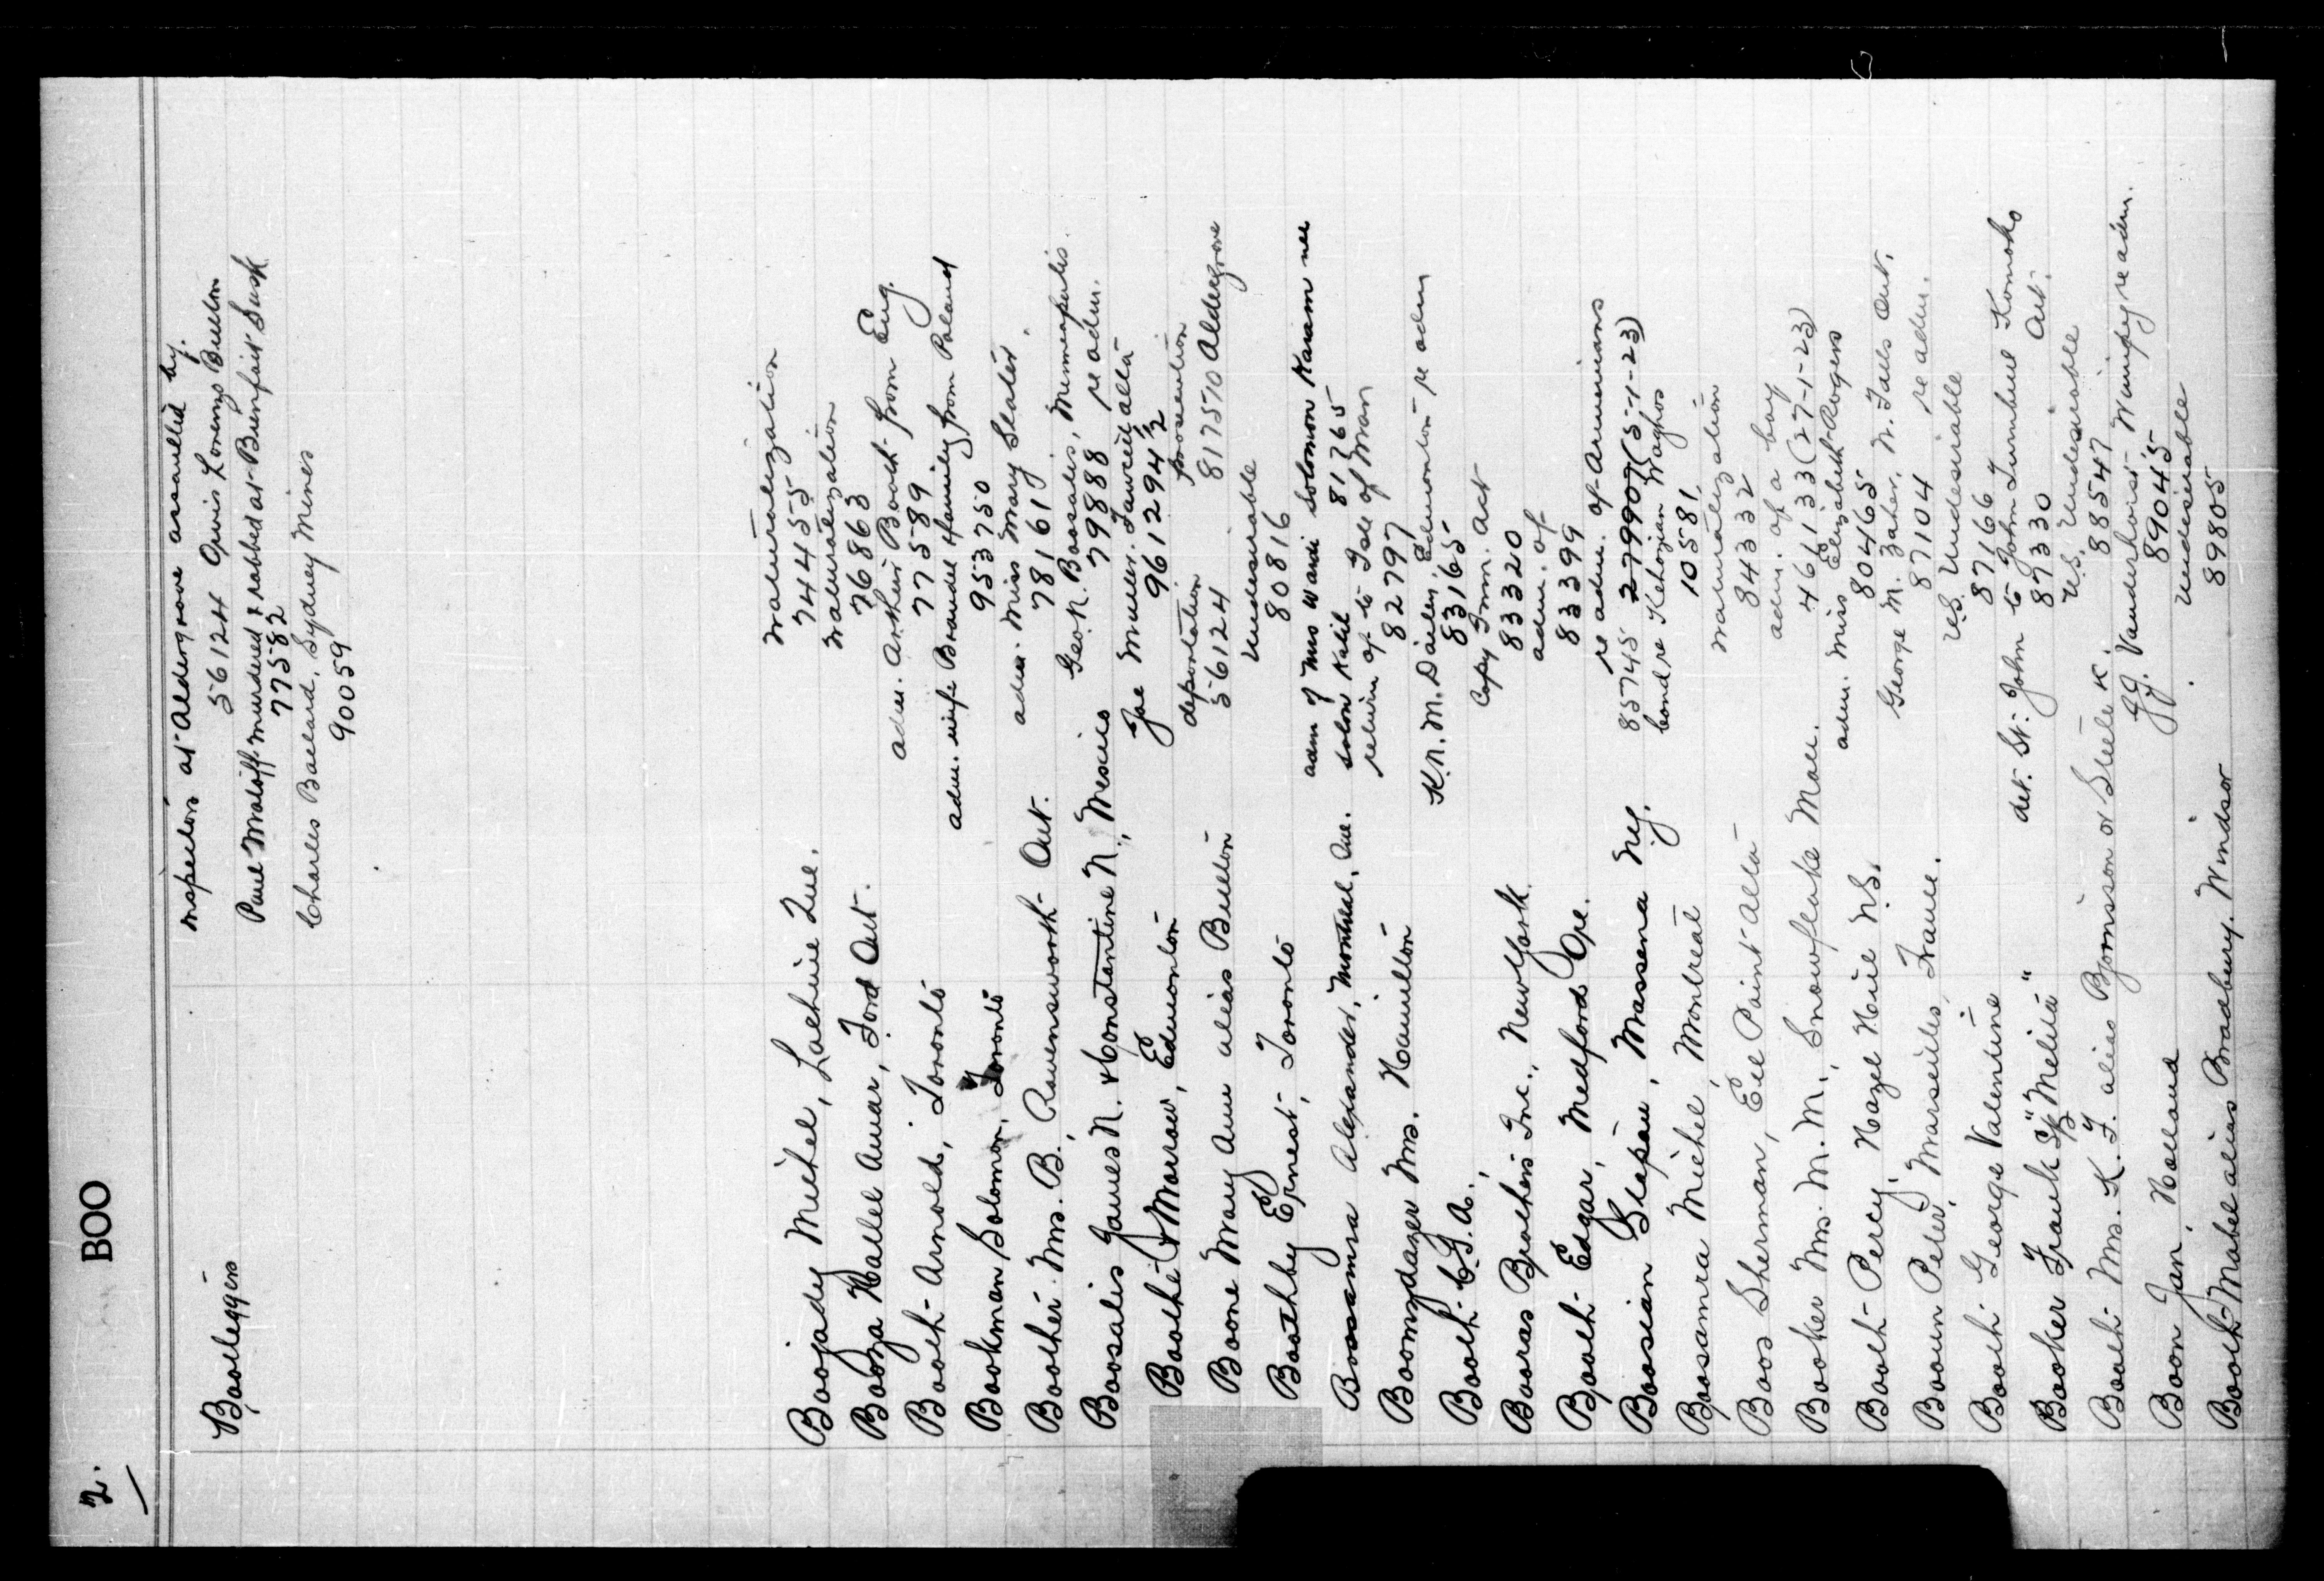 2.
BOO
Bootleggers
inspectors at Aldergrove assaulted by.
56124 Lorenzo Bulton
Paul murdered & robbed at Bienfait Sask
77582
Charles Ballard, Sydney Mines
90059
Boojady Michel, Lachine Que. naturalization
74455
Booza Mallel Amar, Ford Ont. naturalization
76863
Booth Arnold, Toronto adm. Arthur Booth from Eng.
77589
Bookman Solomon, Toronto adm. wife Braudel & family from Poland
953750
Boother Mrs. B., Ravensworth Ont. adm. Miss Mary Slater
78161
Boosalis James N. & Constantine N., Mexico Geo. N. Boosalis, Minneapolis
79888 re adm.
Boothe Morrow, Edmonton Joe Muller. Alta
961294 1/2
Boone Mary Ann alias Bulton deportation prosecution
56124 817570 Aldergrove
Boothby Ernest, Toronto Undesirable
80816
Boosamra Alexander, Montreal, Que. adm of Mrs Wardi Solomon Karam nee
Kalil 81765
Boomydazer Mrs. Hamilton return of to Isle of Man
82797
Booth C. G. A., K. N. M. Edmonton re adm
83165
Booras Brothers Inc., New York. Copy Imm. Act
83320
Booth Edgar, Medford Ore. adm. of
83399
Boosian Stepan, Massena N.y. re adm. of Armenians
85745 279907 (5-1-23)
bond re Kehozian Waghos
10581
Boosamra Michel, Montreal naturalization
84332
Boos Sherman, Eel Point Alta adm. of a boy
466133 (27-1-23)
Booker Mrs. M. M., Snowflake Man. adm. Miss Elizabeth Rogers
80465
Booth Percy, Hazel Hill N.S. George M. Zaher. N. Falls Ont.
87104 re adm.
Booun Peter, Marseilles, France. U.S. Undesirable
87166
Booth George Valentine det. St. John to John Turnbull Komoka
87330 Ont.
Booker Frank S. "Melita" U.S. Undesirable
88547
Booth Mrs. K. F. alias Bjornsson or Steele K. J.G. Vanderhorst Winnipeg re adm.
89045
Boon Jan, Holland Undesirable
89805
Booth Mabel alias Bradbury. Windsor